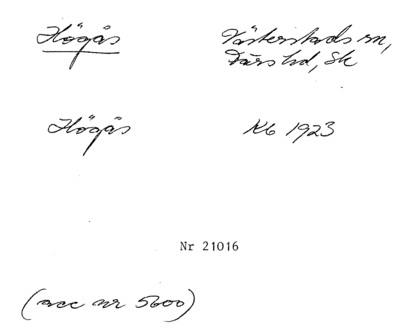 Högås Västerstads sn,
Färs hd, Sk
Högås Kb 1923
Nr 21016
(acc nr 5600)